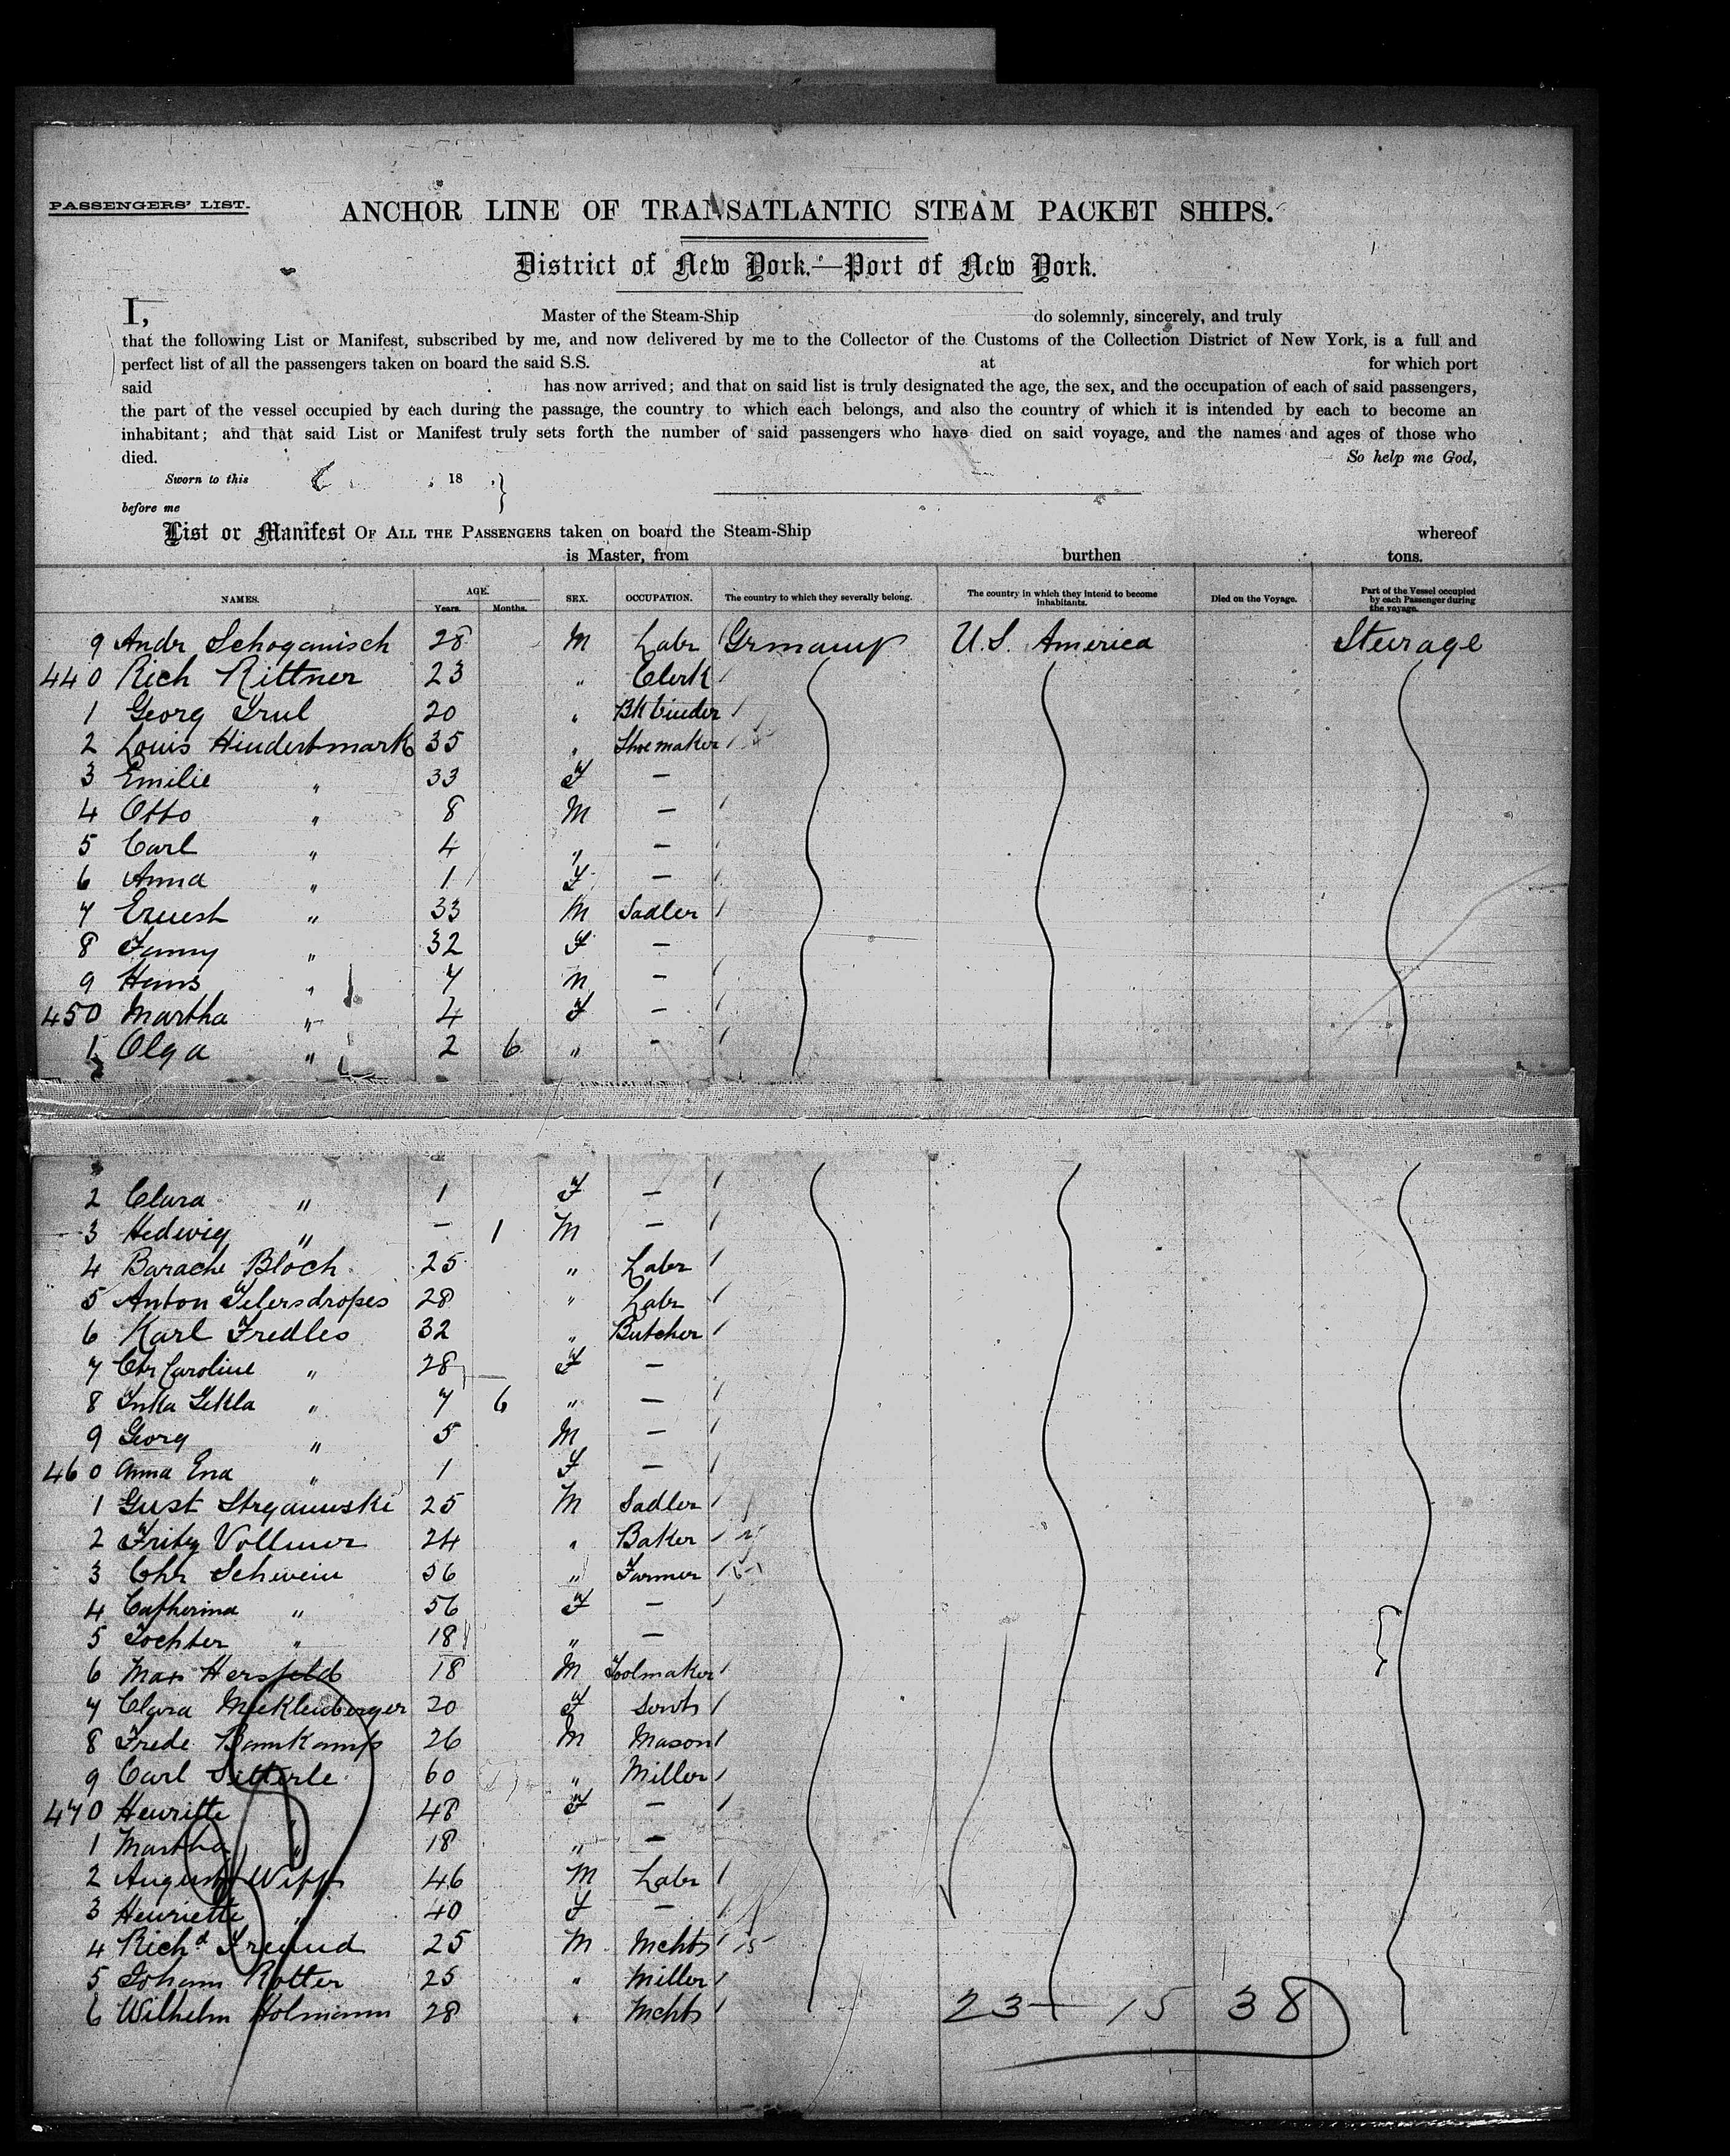 PASSENGERS' LIST.
ANCHOR LINE OF TRANSATLANTIC STEAM PACKET SHIPS.
District of New York.—Port of New York.
I, Master of the Steam-Ship do solemnly, sincerely, and truly
that the following List or Manifest, subscribed by me, and now delivered by me to the Collector of the Customs of the Collection District of New York, is a full and
perfect list of all the passengers taken on board the said S.S. at for which port
said has now arrived; and that on said list is truly designated the age, the sex, and the occupation of each of said passengers,
the part of the vessel occupied by each during the passage, the country to which each belongs, and also the country of which it is intended by each to become an
inhabitant; and that said List or Manifest truly sets forth the number of said passengers who have died on said voyage, and the names and ages of those who
died. So help me God,
Sworn to this 18
before me
List or Manifest OF ALL THE PASSENGERS taken on board the Steam-Ship whereof
is Master, from burthen tons.
NAMES. AGE. Years. Months. SEX. OCCUPATION. The country to which they severally belong. The country in which they intend to become inhabitants. Died on the Voyage. Part of the Vessel occupied by each Passenger during the voyage.
9 Andr Schoganisch 28 M Labr Grmany U.S. America Steurage
440 Rich Rittner 23 " Clerk
1 Georg 20 " Bkbinder
2 Louis Hindertmark 35 " Shoemaker
3 Emilie " 33 F —
4 Otto " 8 M —
5 Carl " 4 " —
6 Anna " 1 F —
7 Ernest " 33 M Sadler
8 Fanny " 32 F —
9 Hans " 7 M —
450 Martha " 4 F —
1 Olga " 2 6 " -
2 Clara " 1 F —
3 Hedwig " — 1 M —
4 Barache Bloch 25 " Labr
5 Anton 28 " Labr
6 Karl Fredles 32 " Butcher
7 Chr Caroline " 28 F —
8 Inka Tekla " 7 6 " —
9 Georg " 5 M —
460 Anna Ena " 1 F —
1 Gust 25 M Sadler
2 Fritz Vollmer 24 " Baker
3 Chr Schwein 56 " Farmer
4 Catherina " 56 F —
5 Tochter " 18 " —
6 Max Hersfeld 18 M Toolmaker
7 Clara Mecklenberger 20 F Servts
8 Frede Bamkamp 26 M Mason
9 Carl Sitterle 60 " Miller
470 Henritte " 48 F —
1 Martha " 18 " —
2 August Wipp 46 M Labr
3 Henriette " 40 F —
4 Richd Freund 25 M Mchts 15
5 Johann Rotter 25 " Miller
6 Wilhelm Holmann 28 " Mchts
23 + 15 38